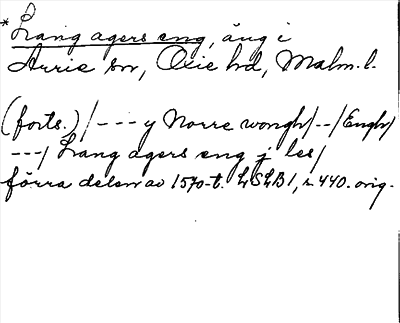 *Lang agers eng, äng i
Arrie sn, Oxie hd, Malm. l.
(forts.) /--- y Norre wongh/--/Engh/
---/ Lang agers eng j les/
förra delen av 1570-t. LSLB 1, s. 440. orig.